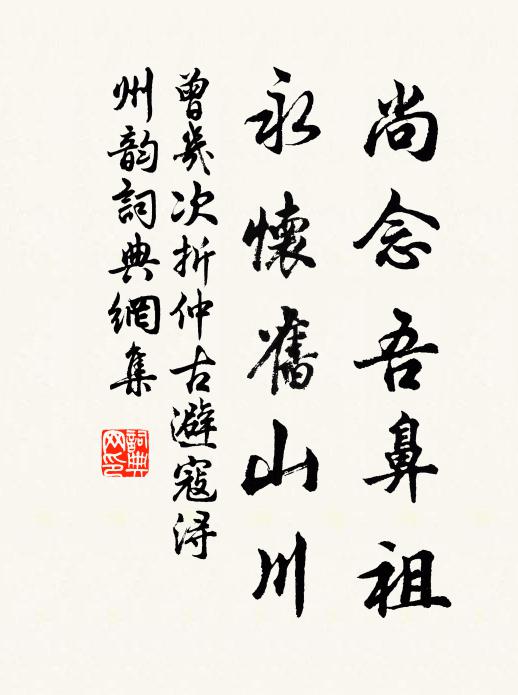 尚念吾鼻祖
永懷舊山川
曾幾次折仲古避寇潯
州韵詞典網集
詞典
网印